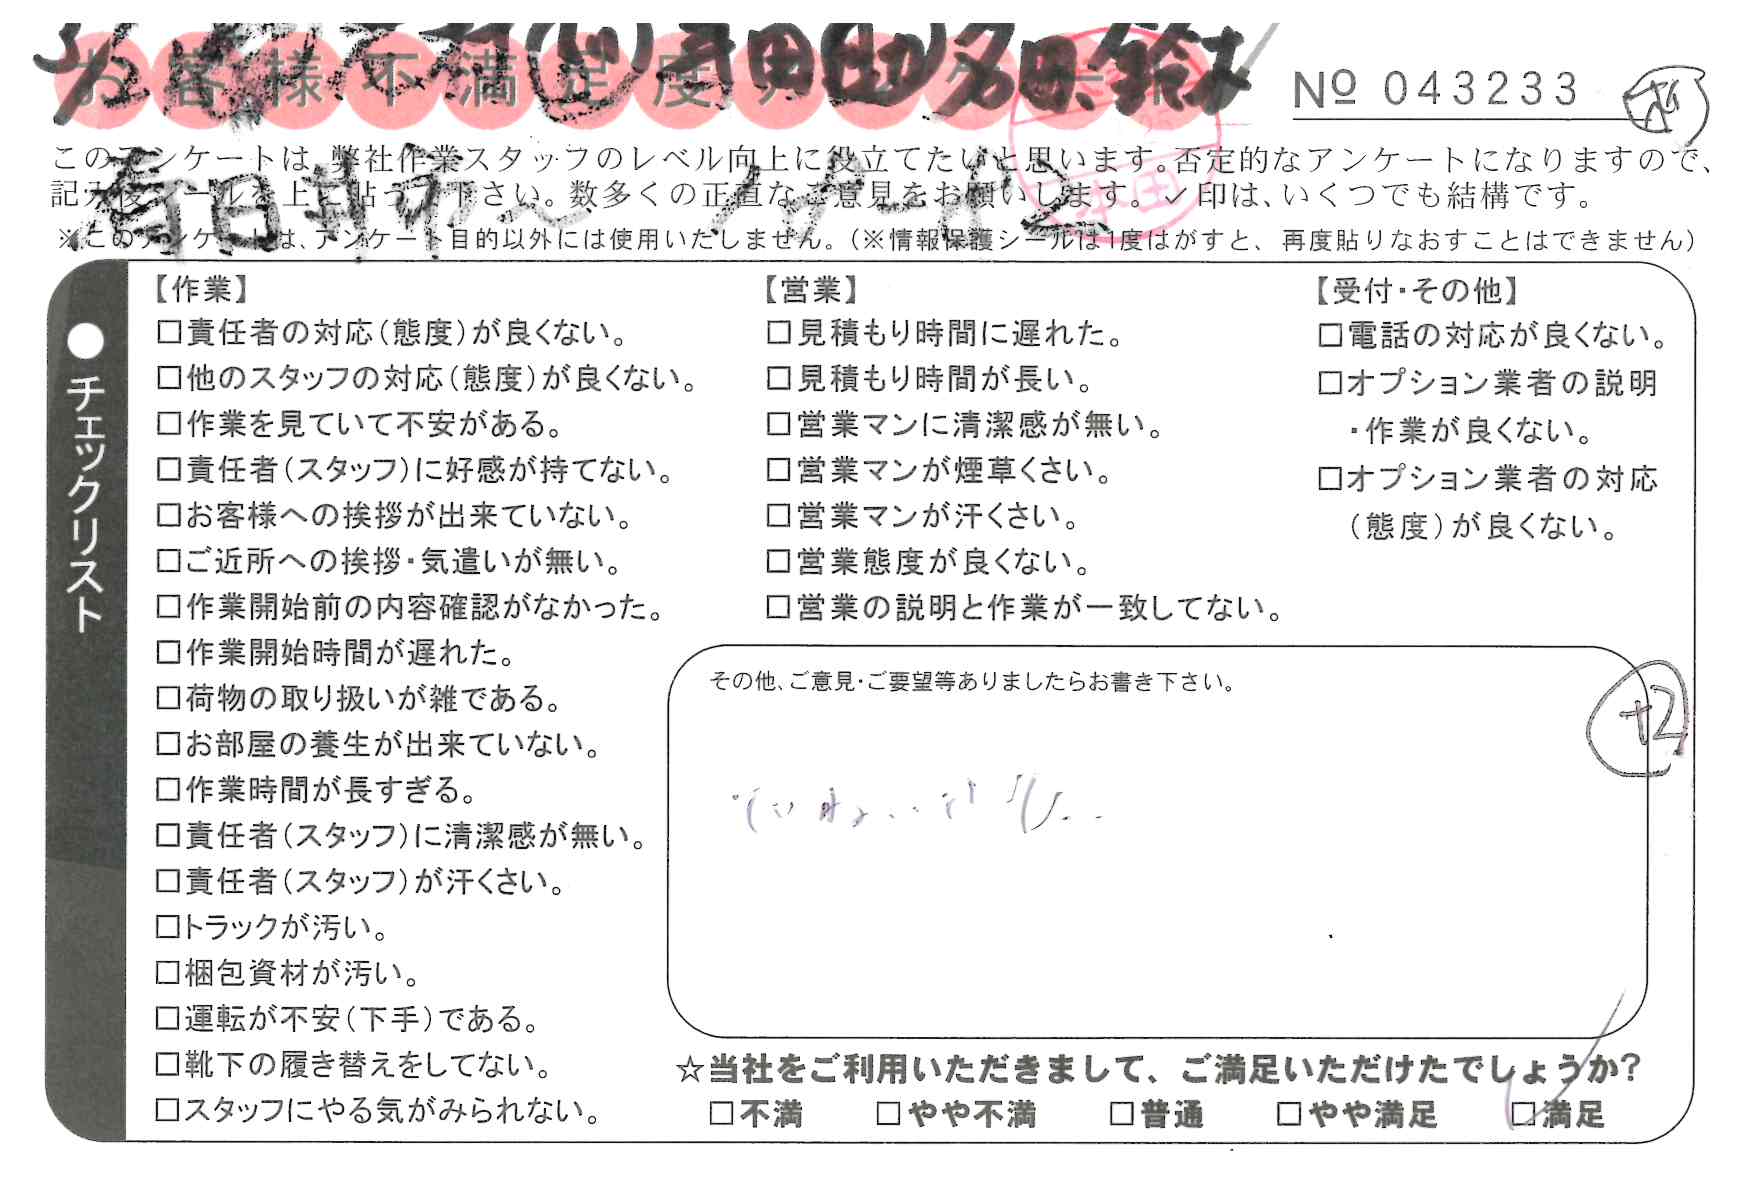 お客様不満足度アンケート
№ 043233
このアンケートは、弊社作業スタッフのレベル向上に役立てたいと思います。否定的なアンケートになりますので、
記入後シールを上に貼って下さい。数多くの正直なご意見をお願いします。✓印は、いくつでも結構です。
※このアンケートは、アンケート目的以外には使用いたしません。（※情報保護シールは1度はがすと、再度貼りなおすことはできません）
●チェックリスト
【作業】
□責任者の対応（態度）が良くない。
□他のスタッフの対応（態度）が良くない。
□作業を見ていて不安がある。
□責任者（スタッフ）に好感が持てない。
□お客様への挨拶が出来ていない。
□ご近所への挨拶・気遣いが無い。
□作業開始前の内容確認がなかった。
□作業開始時間が遅れた。
□荷物の取り扱いが雑である。
□お部屋の養生が出来ていない。
□作業時間が長すぎる。
□責任者（スタッフ）に清潔感が無い。
□責任者（スタッフ）が汗くさい。
□トラックが汚い。
□梱包資材が汚い。
□運転が不安（下手）である。
□靴下の履き替えをしてない。
□スタッフにやる気がみられない。
【営業】
□見積もり時間に遅れた。
□見積もり時間が長い。
□営業マンに清潔感が無い。
□営業マンが煙草くさい。
□営業マンが汗くさい。
□営業態度が良くない。
□営業の説明と作業が一致してない。
【受付・その他】
□電話の対応が良くない。
□オプション業者の説明
・作業が良くない。
□オプション業者の対応
（態度）が良くない。
その他、ご意見・ご要望等ありましたらお書き下さい。
+2
☆当社をご利用いただきまして、ご満足いただけたでしょうか?
□不満 □やや不満 □普通 □やや満足 □満足